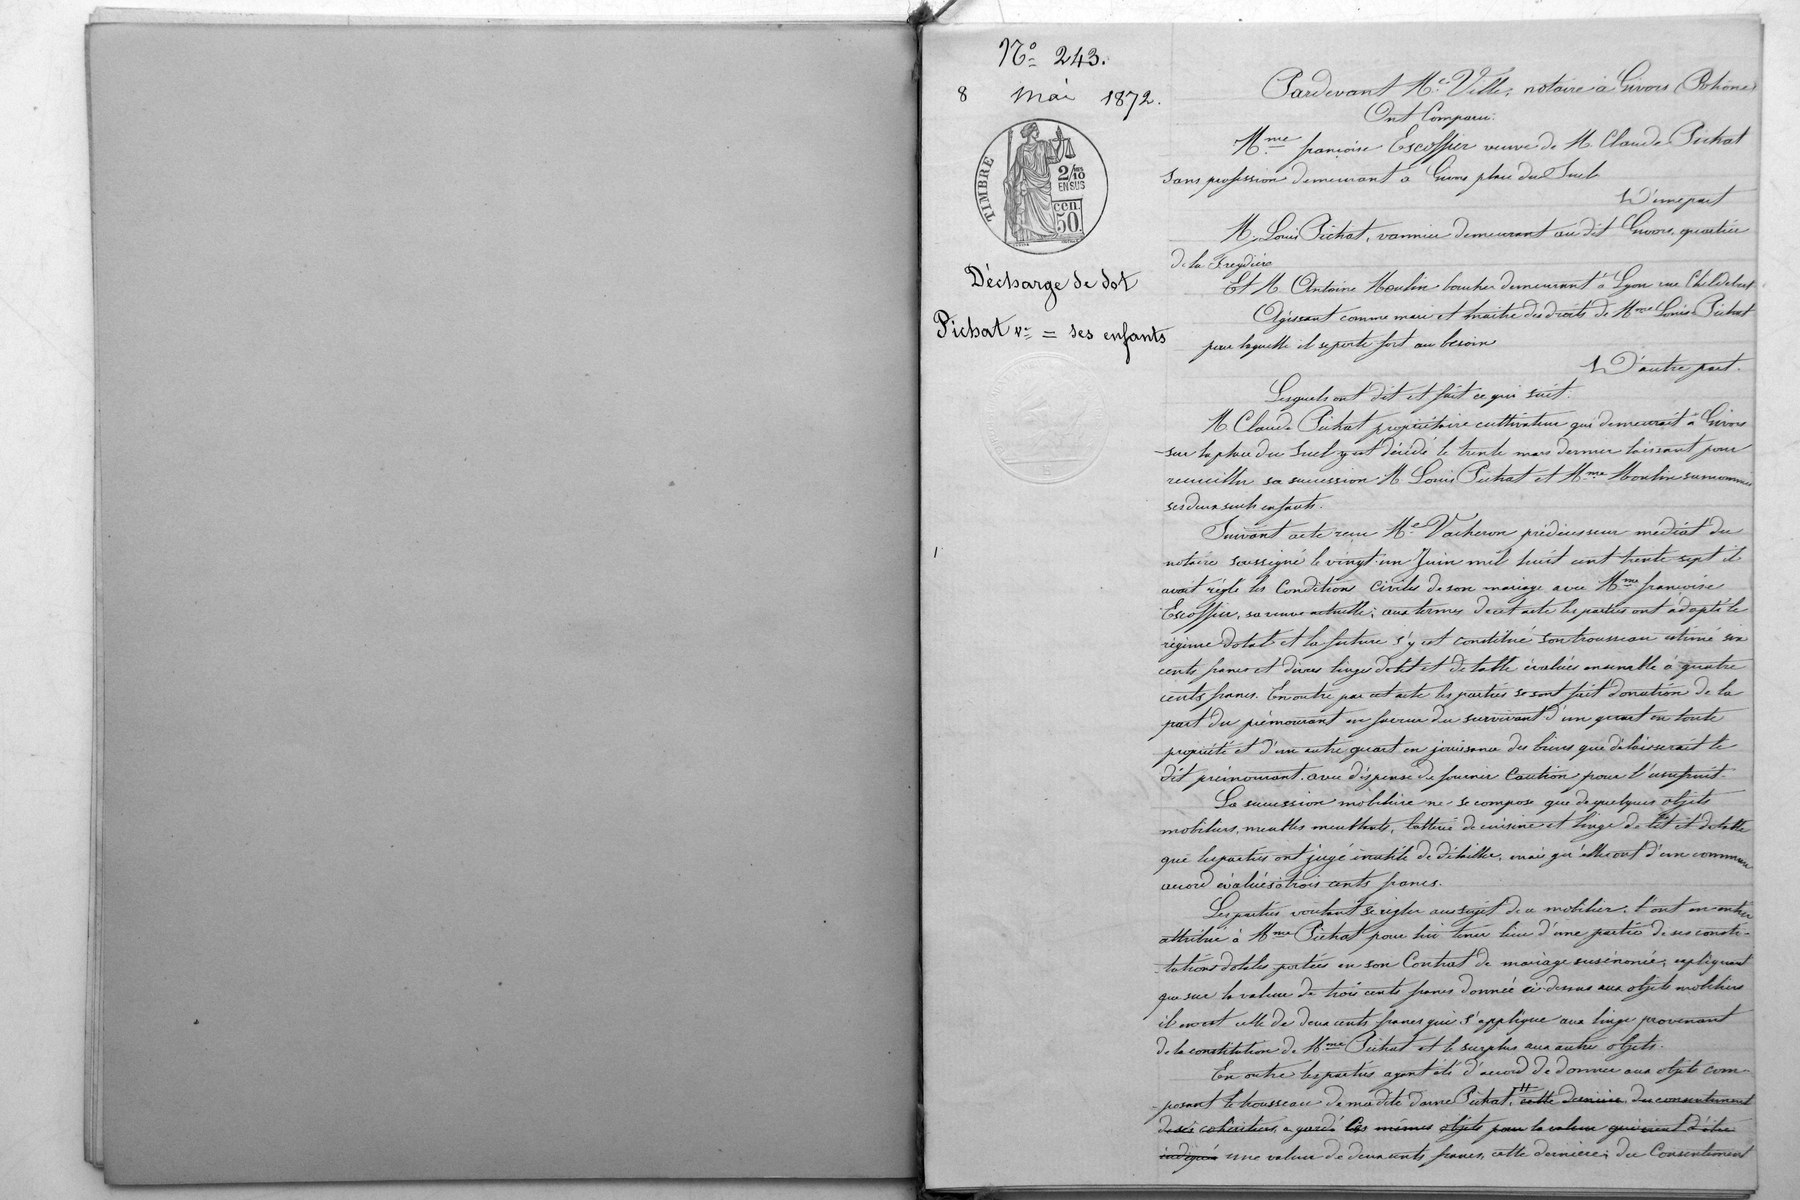 N° 243.
8 Mai 1872.
TIMBRE
2/10
EN SUS
cen.
50.
Décharge de dot
Pichat Vve = ses enfants
Pardevant Me Ville, notaire à Givors (Rhône)
Ont Comparu:
Mme françoise Escoffier veuve de M. Claude Pichat
sans profession demeurant à Givors place du Suel
D'une part
M. Louis Pichat, vannier demeurant au dit Givors, quartier
de la Freydière
Et M. Antoine Moulin boucher demeurant à Lyon rue Childebert
Agissant comme mari et maître des droits de Mme Louise Pichat
pour laquelle il se porte fort au besoin
D'autre part.
Lesquels ont dit et fait ce qui suit.
M. Claude Pichat propriétaire cultivateur qui demeurait à Givors
sur la place du Suel y est décédé le trente mars dernier laissant pour
recueillir sa succession M. Louis Pichat et Mme Moulin surnommés
ses deux seuls enfants.
Suivant acte reçu Me Vacheron prédécesseur médiat du
notaire soussigné le vingt un Juin mil huit cent trente sept il
avait réglé les Conditions Civiles de son mariage avec Mme françoise
Escoffier, sa veuve actuelle; aux termes de cet acte les parties ont adopté le
régime dotal et la future s'y est constitué son trousseau estimé six
cents francs et divers linges de lit et de table évalués ensemble à quatre
cents francs. En outre par cet acte les parties se sont fait donation de la
part du prémourant en faveur du survivant d'un quart en toute
propriété et d'un autre quart en jouissance des biens que délaisserait le
dit prémourant avec dispense de fournir Caution pour l'usufruit.
La succession mobilière ne se compose que de quelques objets
mobiliers, meubles meublants, batterie de cuisine et linge de lit et de table
que les parties ont jugé inutile de détailler, mais qu'elles ont d'un commun
accord évalués à trois cents francs.
Les parties voulant se régler au sujet de ce mobilier, l'ont en entier
attribué à Mme Pichat pour lui tenir lieu d'une partie de ses consti-
tutions dotales portées en son Contrat de mariage susénoncé, expliquant
que sur la valeur de trois cents francs donnée ci-dessus aux objets mobiliers
il en est celle de deux cents francs qui s'applique aux linges provenant
de la constitution de Mme Pichat et le surplus aux autres objets.
En outre les parties ayant été d'accord de donner aux objets com-
posant le trousseau de madite dame Pichat, cette dernière, du consentement
de ses cohéritiers, a gardé les mêmes objets pour la valeur qui vient d'être
indiquée une valeur de deux cents francs, cette dernière, du Consentement